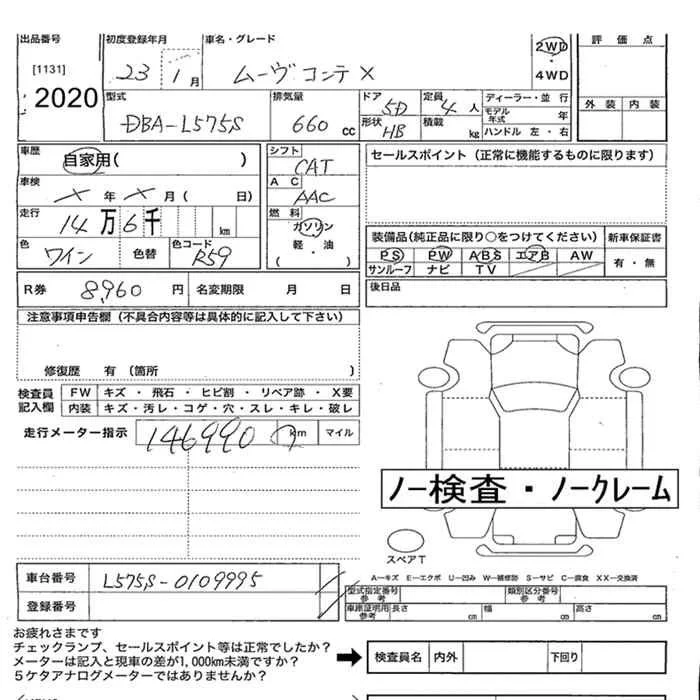 出品番号 初度登録年月 車名・グレード 評価点
[1131] 23 1月 ムーヴコンテ X 2WD
4WD
2020
型式 排気量 ドア 定員 ディーラー・並行 外装 内装
DBA-L575S 660 cc 5D 4人 モデル年式 年
形状 HB 積載 kg ハンドル 左・右
車歴 自家用( ) シフト CAT セールスポイント(正常に機能するものに限ります)
車検 X年 X月( 日) AC AAC
走行 14万6千 km 燃料 ガソリン
軽・油
( )
色 ワイン 色替 色コード R59
装備品(純正品に限り○をつけてください) 新車保証書
PS PW ABS エアB AW 有・無
サンルーフ ナビ TV
R券 8,960円 名変期限 月 日 後日品
注意事項申告欄(不具合内容等は具体的に記入して下さい)
修復歴 有(箇所 )
検査員記入欄 FW キズ・飛石・ヒビ割・リペア跡・X要
内装 キズ・汚レ・コゲ・穴・スレ・キレ・破レ
走行メーター指示 146990 km マイル
ノー検査・ノークレーム
スペアT
A-キズ E-エクボ U-凹み W-補修跡 S-サビ C-腐食 XX-交換済
車台番号 L575S-0109995
型式指定番号参考 類別区分番号参考
登録番号 車庫証明用参考 長さ cm 幅 cm 高さ cm
お疲れさまです
チェックランプ、セールスポイント等は正常でしたか?
メーターは記入と現車の差が1,000km未満ですか?
5ケタアナログメーターではありませんか?
検査員名 内外 下回り